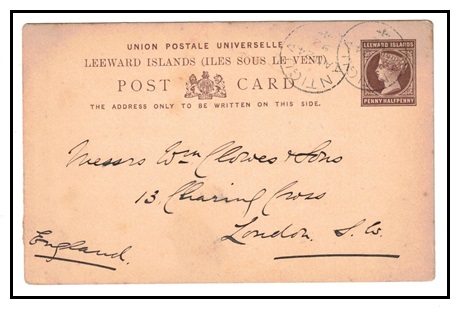 UNION POSTALE UNIVERSELLE
LEEWARD ISLANDS (ILES SOUS LE VENT)
POST CARD
THE ADDRESS ONLY TO BE WRITTEN ON THIS SIDE.
LEEWARD ISLANDS
PENNY HALFPENNY
ANTIGUA
Messrs Wm Clowes & Sons
13 Charing Cross
London. S.W.
England.